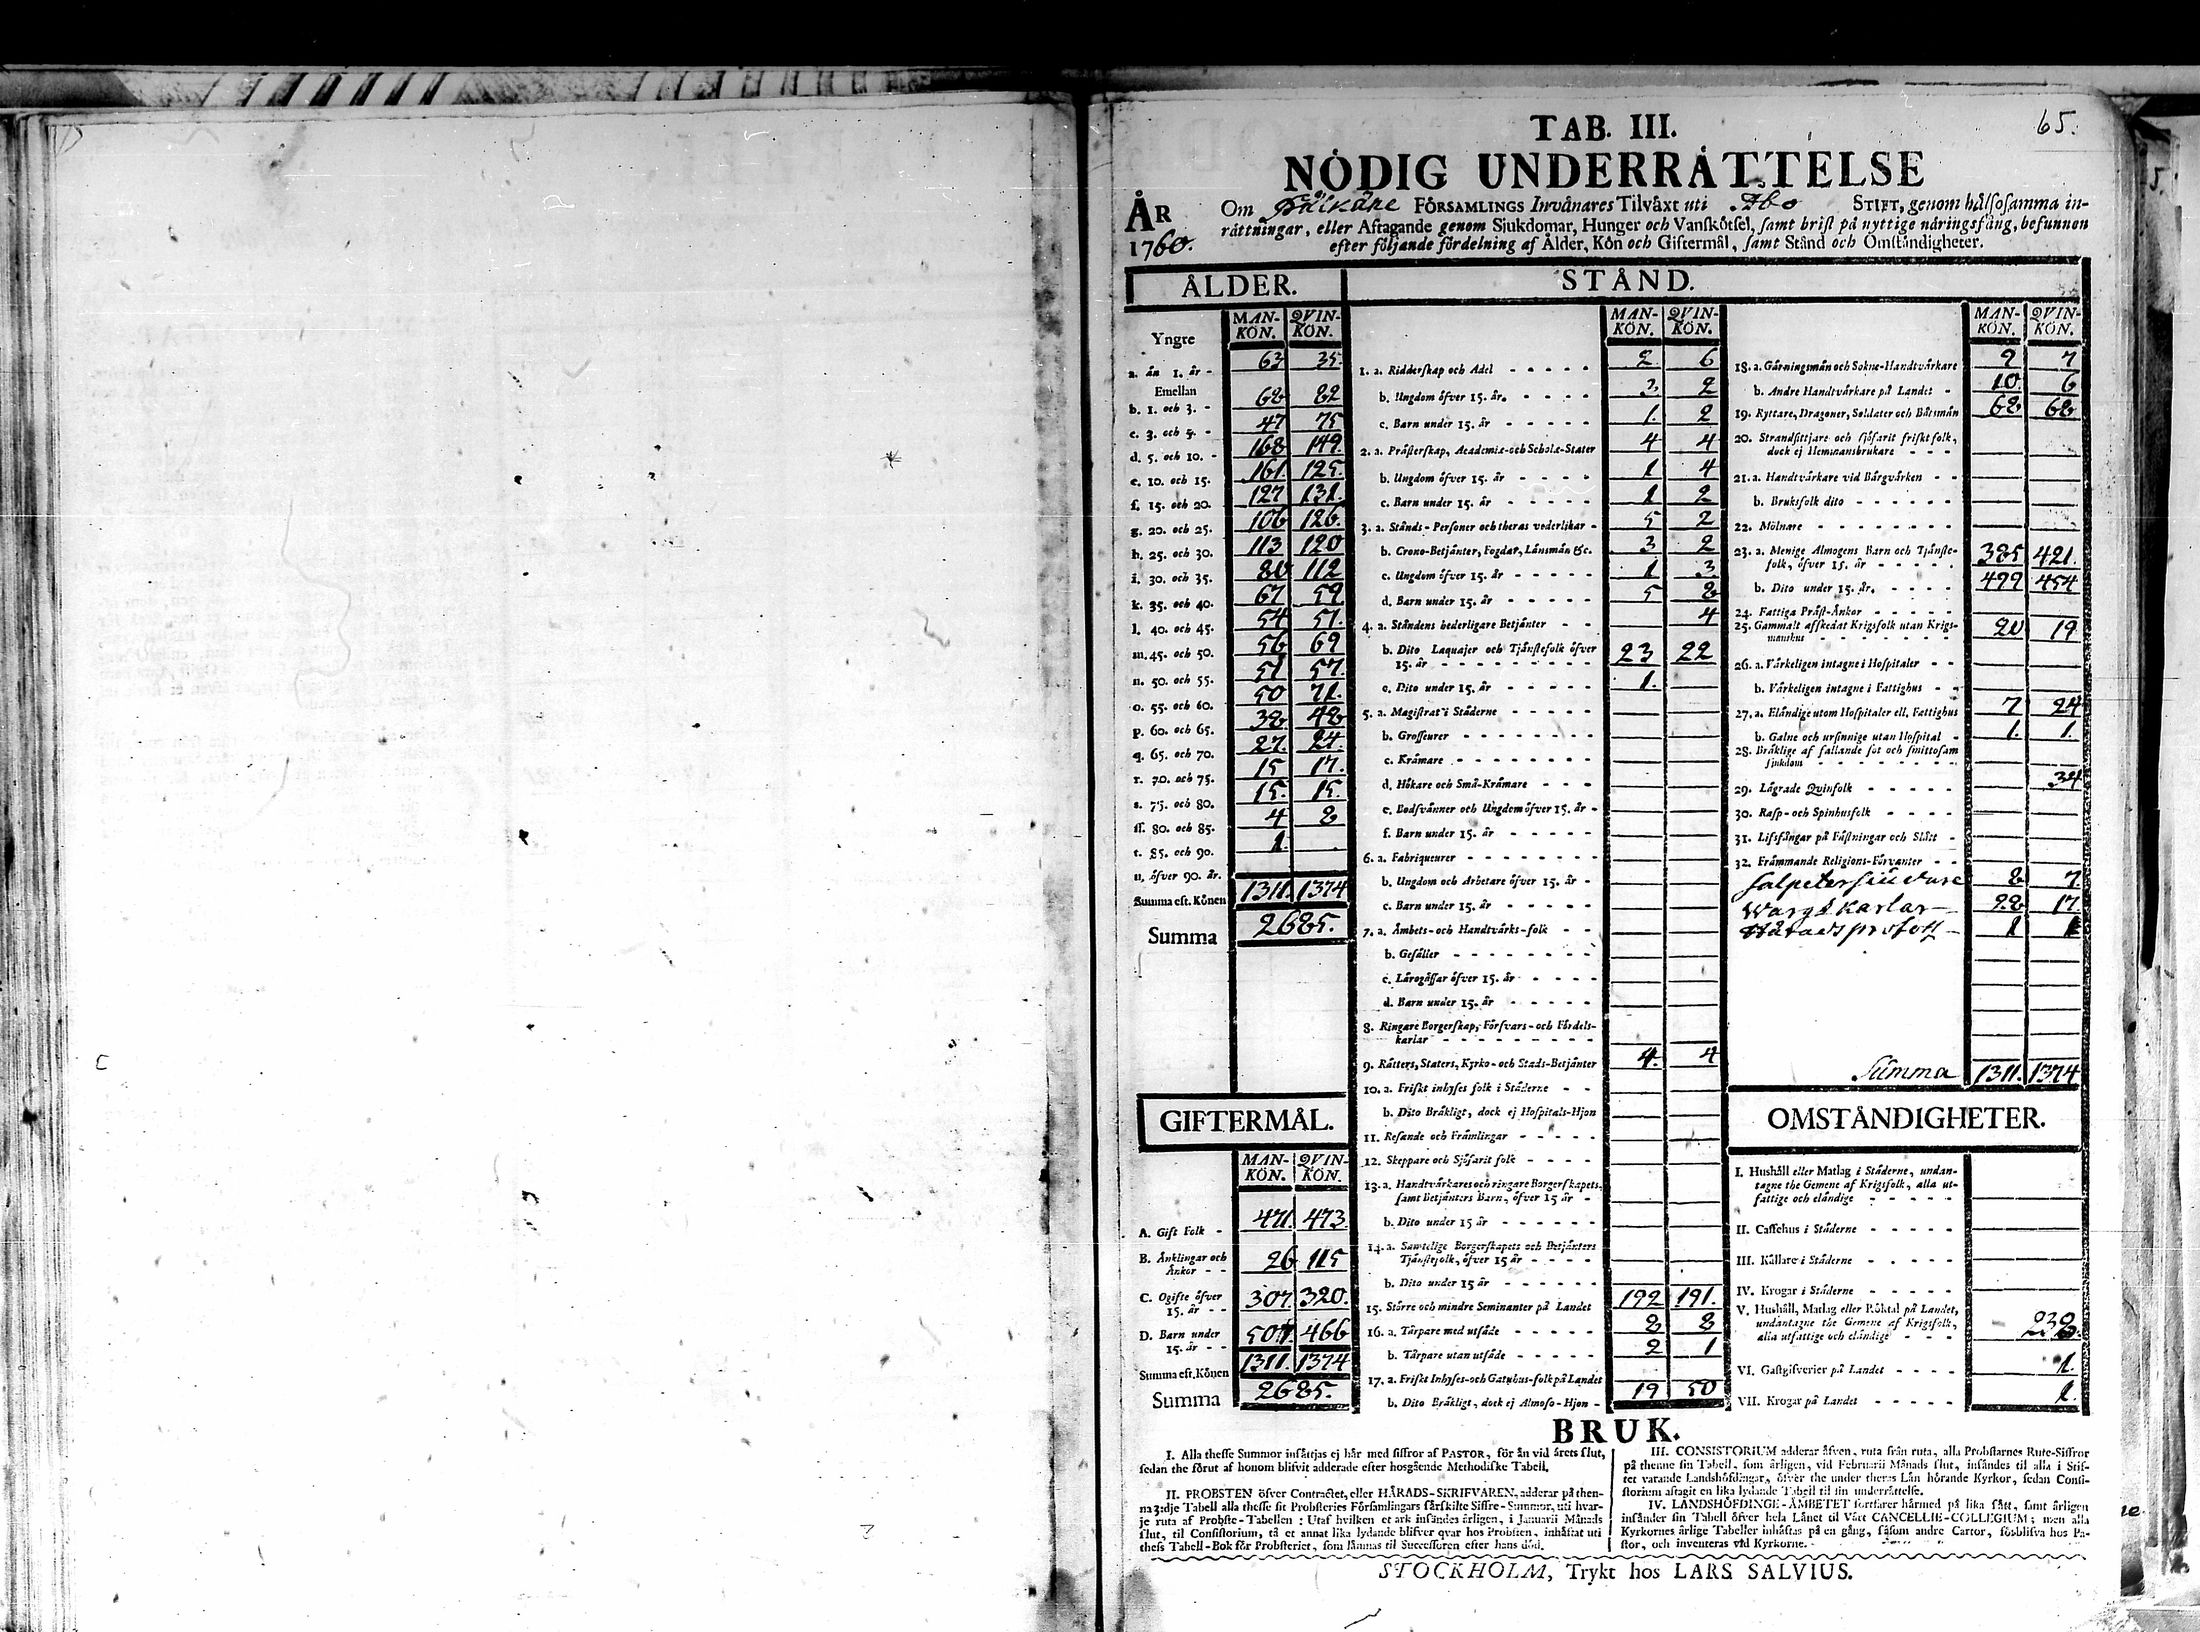 65.
TAB. III.
NÖDIG UNDERRÄTTELSE
ÅR 1760.
Om Pälkäne FÖRSAMLINGS Invånares Tilväxt uti Åbo STIFT, genom hälsosamma in-
rättningar, eller Aftagande genom Sjukdomar, Hunger och Vanskötsel, samt brist på nyttige näringsfång, befunnen
efter följande fördelning af Ålder, Kön och Giftermål, samt Stånd och Omständigheter.
ÅLDER.
MAN-KÖN. QVIN-KÖN.
Yngre
a. än 1. år - 63 35
Emellan
b. 1. och 3. - 68 82
c. 3. och 5. - 47 75
d. 5. och 10. - 168 149.
e. 10. och 15. 161. 125.
f. 15. och 20. 127 131.
g. 20. och 25. 106 126.
h. 25. och 30. 113 120
i. 30. och 35. 80 112
k. 35. och 40. 67 59
l. 40. och 45. 54 57.
m. 45. och 50. 56 69
n. 50. och 55. 51 57.
o. 55. och 60. 50 71.
p. 60. och 65. 38 48
q. 65. och 70. 27. 24.
r. 70. och 75. 15 17.
s. 75. och 80. 15. 15.
ss. 80. och 85. 4 8
t. 85. och 90. 1.
u. öfver 90. år.
Summa eft. Könen 1311. 1374
Summa 2685.
GIFTERMÅL.
MAN-KÖN. QVIN-KÖN.
A. Gift Folk - 471. 473.
B. Änklingar och
Änkor - - 26 115
C. Ogifte öfver
15. år - - 307. 320.
D. Barn under
15. år - - 507 466
Summa eft. Könen 1311. 1374
Summa 2685.
STÅND.
MAN-KÖN. QVIN-KÖN.
1. a. Ridderskap och Adel - - - - - 2 6
b. Ungdom öfver 15. år. - - - - 3. 2
c. Barn under 15. år - - - - - 1. 2
2. a. Prästerskap, Academiæ- och Scholæ-Stater 4 4
b. Ungdom öfver 15. år - - - - 1 4
c. Barn under 15. år - - - - - 1 2
3. a. Stånds-Personer och theras vederlikar - 5 2
b. Crono-Betjänter, Fogdar, Länsmän &c. 3 2
c. Ungdom öfver 15. år - - - - - 1 3.
d. Barn under 15. år - - - - - 5 8
4. a. Ståndens hederligare Betjänter - - 4
b. Dito Laquajer och Tjänstefolk öfver
15. år - - - - - - - - - 23 22
c. Dito under 15. år - - - - - 1.
5. a. Magistrat i Städerne - - - - -
b. Grosseurer - - - - - - - -
c. Krämare - - - - - - - -
d. Hökare och Små-Krämare - - - -
e. Bodsvänner och Ungdom öfver 15. år -
f. Barn under 15. år - - - - -
6. a. Fabriqueurer - - - - - - - -
b. Ungdom och Arbetare öfver 15. år -
c. Barn under 15. år - - - - -
7. a. Ämbets- och Handtvärks-folk - -
b. Gesäller - - - - - - - -
c. Lärogåssar öfver 15. år - - - -
d. Barn under 15. år - - - - -
8. Ringare Borgerskap, Försvars- och Fördels-
karlar - - - - - - - - -
9. Rätters, Staters, Kyrko- och Stads-Betjänter 4. 4
10. a. Friskt inhyses folk i Städerne - -
b. Dito Bräkligt, dock ej Hospitals-Hjon
11. Resande och Främlingar - - - - -
12. Skeppare och Sjöfarit folk - - - -
13. a. Handtvärkares och ringare Borgerskapets,
samt Betjänters Barn, öfver 15 år -
b. Dito under 15 år - - - - - -
14. a. Samtelige Borgerskapets och Betjänters
Tjänstefolk, öfver 15 år - - - -
b. Dito under 15 år - - - - - -
15. Större och mindre Seminanter på Landet 192 191.
16. a. Tårpare med utsäde - - - - - 8 8
b. Tårpare utan utsäde - - - - - 2 1
17. a. Friskt Inhyses- och Gatuhus-folk på Landet
b. Dito Bräkligt, dock ej Almoso-Hjon - 19 50
MAN-KÖN. QVIN-KÖN.
18. a. Gärningsmän och Sokne-Handtvärkare 9 7
b. Andre Handtvärkare på Landet - 10. 6
19. Ryttare, Dragoner, Soldater och Båtsmän 68 68
20. Strandsittjare och sjöfarit friskt folk,
dock ej Hemmansbrukare - - -
21. a. Handtvärkare vid Bärgvärken - -
b. Bruksfolk dito - - - - - -
22. Mölnare - - - - - - - -
23. a. Menige Almogens Barn och Tjänste-
folk, öfver 15. år - - - - - 385 421.
b. Dito under 15. år. - - - - 499 454
24. Fattiga Präst-Änkor - - - - -
25. Gammalt afskedat Krigsfolk utan Krigs-
manshus - - - - - - - 20 19
26. a. Värkeligen intagne i Hospitaler - -
b. Värkeligen intagne i Fattighus - -
27. a. Eländige utom Hospitaler ell. Fattighus 7 24
b. Galne och ursinnige utan Hospital - 1. 1.
28. Bräklige af fallande sot och smittosam
sjukdom - - - - - - - - -
29. Lägrade Qvinfolk - - - - - 34
30. Rasp- och Spinhusfolk - - - -
31. Lifsfångar på Fästningar och Slått -
32. Främmande Religions-Förvanter - -
Salpetersiudare 8 7.
Wargskarlar 28 17.
Häradsprofoss 1 1
Summa 1311. 1374
OMSTÄNDIGHETER.
I. Hushåll eller Matlag i Städerne, undan-
tagne the Gemene af Krigsfolk, alla ut-
fattige och eländige - - - - -
II. Caffehus i Städerne - - - -
III. Källare i Städerne - - - - -
IV. Krogar i Städerne - - - -
V. Hushåll, Matlag eller Röktal på Landet,
undantagne the Gemene af Krigsfolk,
alla utfattige och eländige - - - 238.
VI. Gästgifverier på Landet - - - - 1.
VII. Krogar på Landet - - - - - 1.
BRUK.
I. Alla thesse Summor insättjas ej här med siffror af PASTOR, för än vid årets slut,
sedan the förut af honom blifvit adderade efter hosgående Methodiske Tabell.
II. PROBSTEN öfver Contractet, eller HÄRADS-SKRIFVAREN, adderar på then-
na 3:dje Tabell alla thesse sit Probsteries Församlingars särskilte Siffre-Summor, uti hvar-
je ruta af Probste-Tabellen: Utaf hvilken et ark insändes årligen, i Januarii Månads
slut, til Consistorium, tå et annat lika lydande blifver qvar hos Probsten, inhäftat uti
thess Tabell-Bok för Probsteriet, som lämnas til Successoren efter hans död.
III. CONSISTORIUM adderar äfven, ruta från ruta, alla Probstarnes Rute-Siffror
på thenne sin Tabell, som årligen, vid Februarii Månads slut, insändes til alla i Stif-
tet varande Landshöfdingar, öfver the under theras Län hörande Kyrkor, sedan Consi-
storium aftagit en lika lydande Tabell til sin underrättelse.
IV. LANDSHÖFDINGE-ÄMBETET fortfarer härmed på lika sätt, samt årligen
insänder sin Tabell öfver hela Länet til Vårt CANCELLIE-COLLEGIUM; men alla
Kyrkornes årlige Tabeller inhäftas på en gång, såsom andre Cartor, föblifva hos Pa-
stor, och inventeras vid Kyrkorne.
STOCKHOLM, Trykt hos LARS SALVIUS.